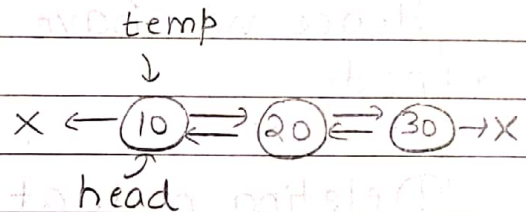 temp
X ← 10 ⇄ 20 ⇄ 30 → X
head